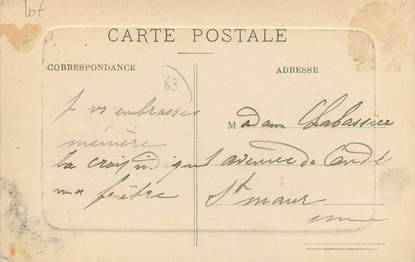 Lot
CARTE POSTALE
CORRESPONDANCE
63
ADRESSE
J vs embrasse
mémère
la croix indique
ma fenêtre
Madame Chabassier
avenue du Condé
St maur